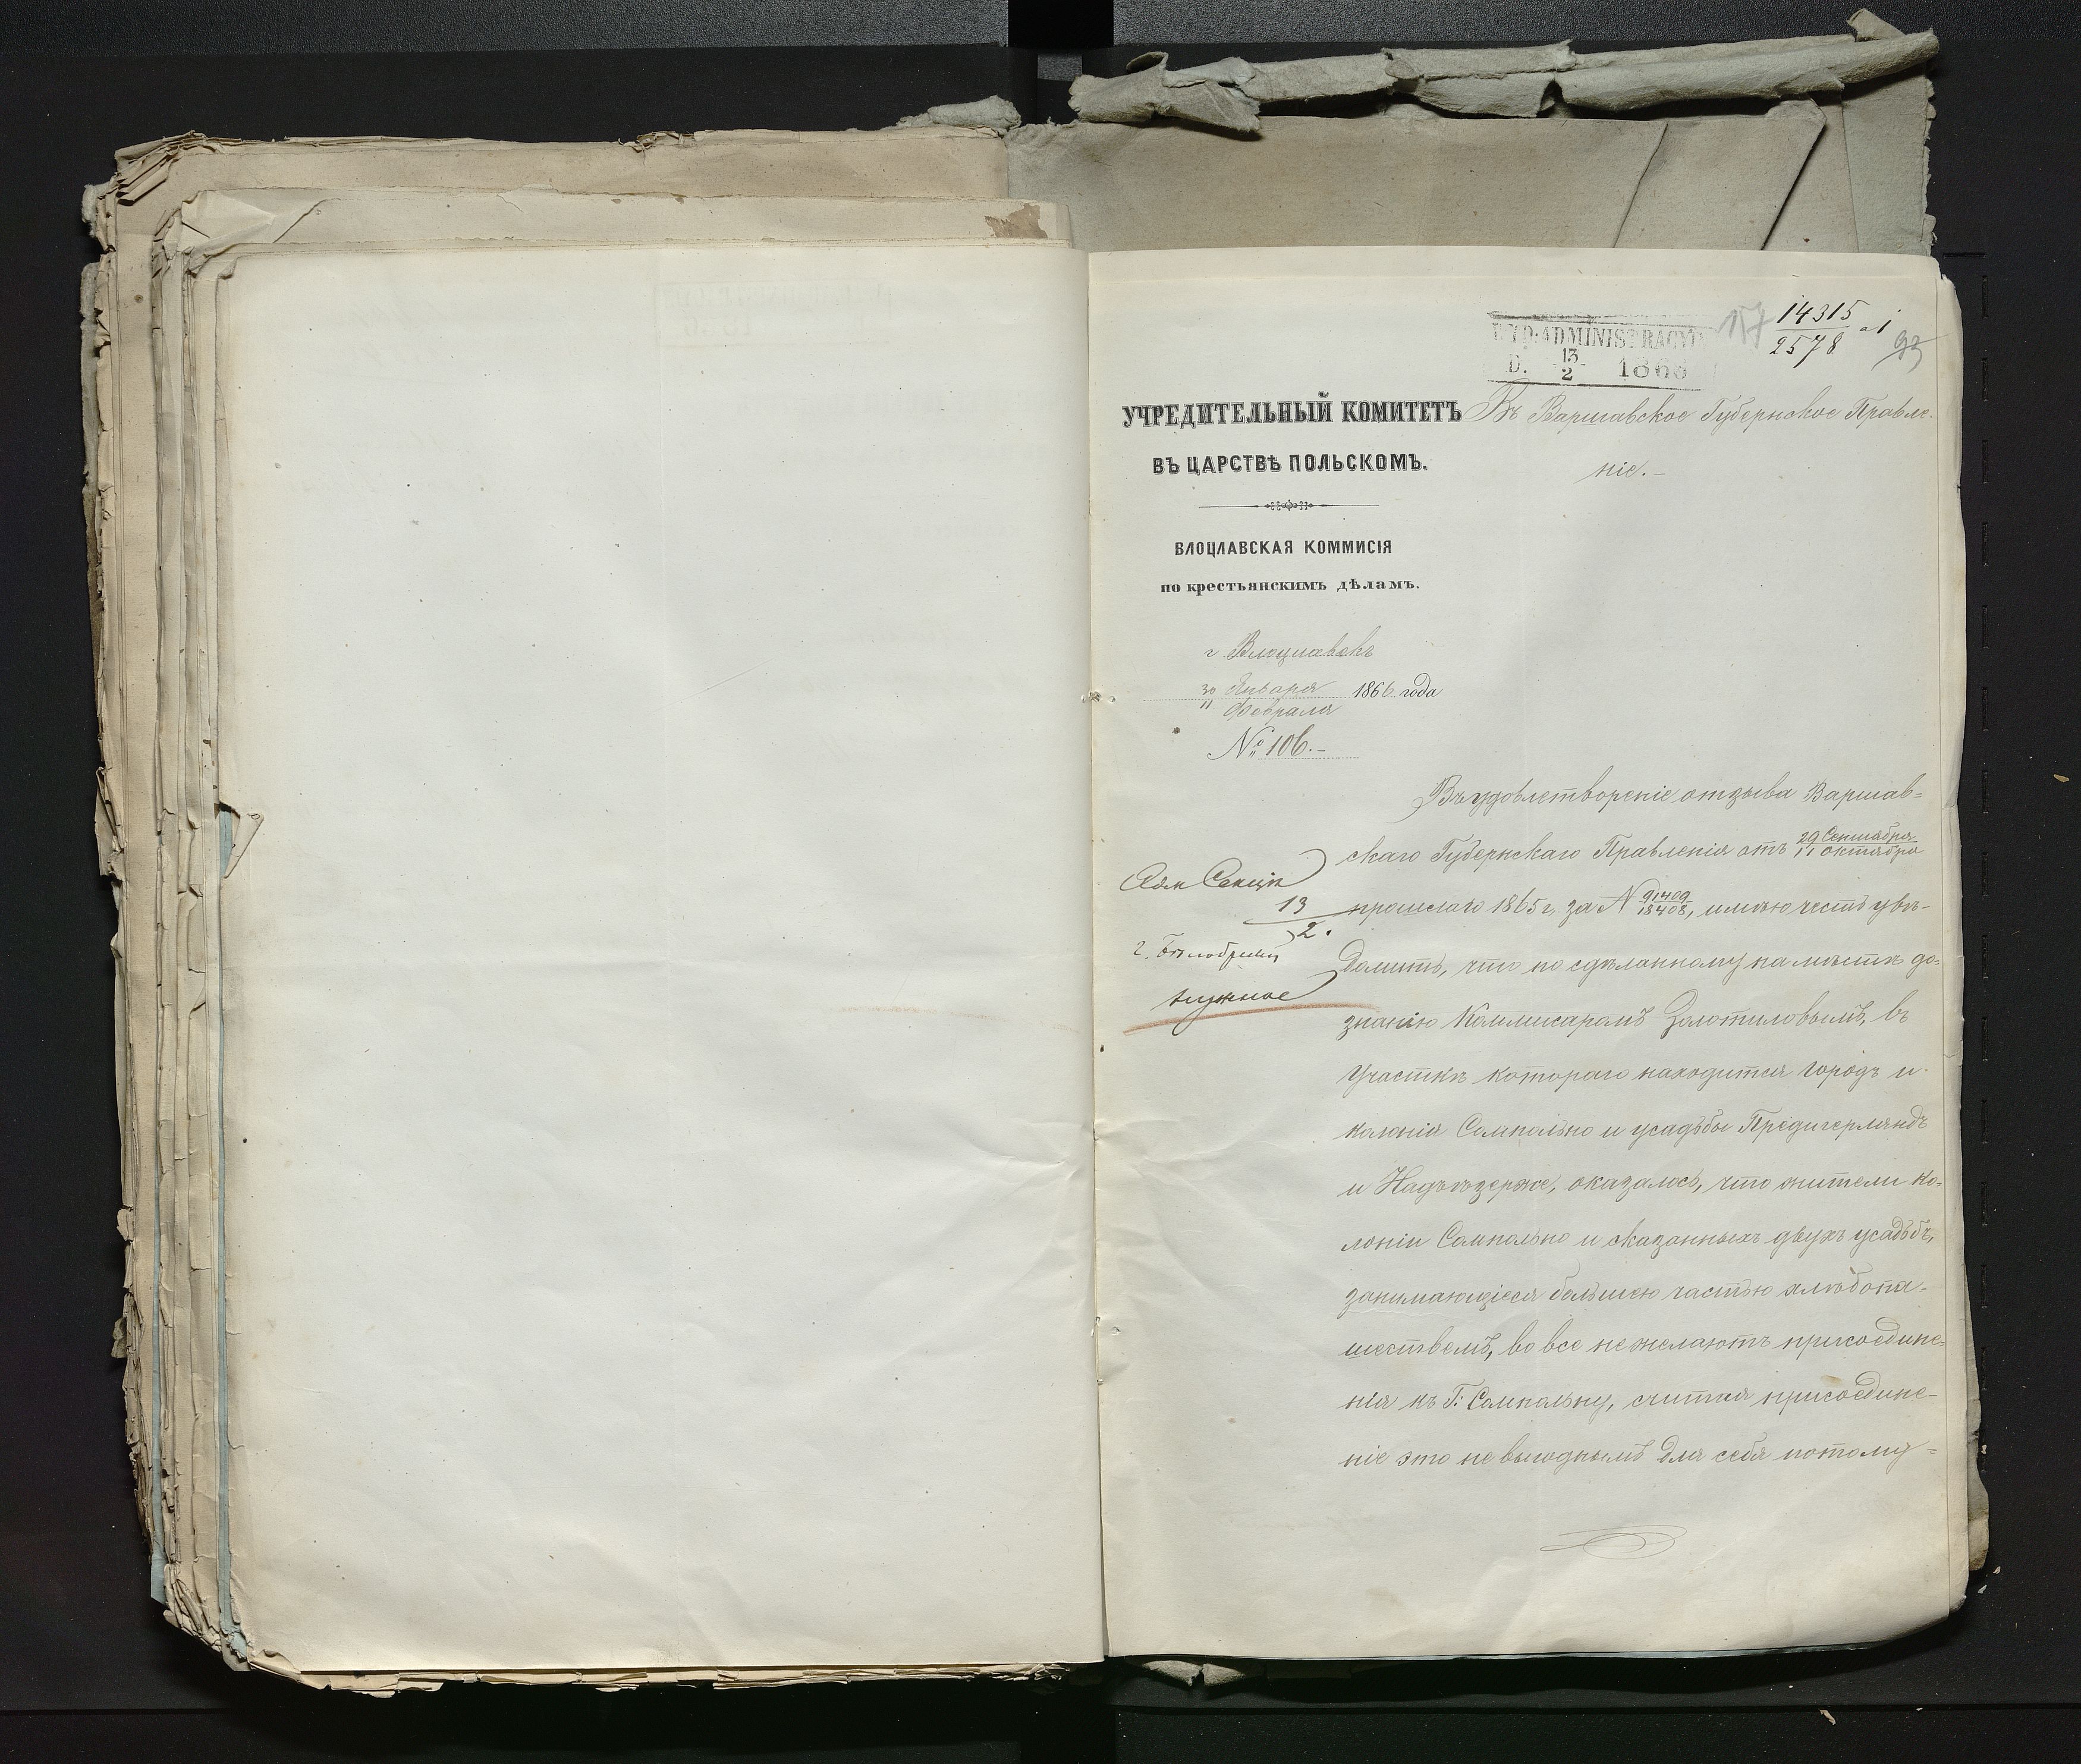 14315
2578 a 1
157
93
WYD: ADMINISTRACYI
D. 13/2 1866
УЧРЕДИТЕЛЬНЫЙ КОМИТЕТЪ
ВЪ ЦАРСТВѢ ПОЛЬСКОМЪ.
ВЛОЦЛАВСКАЯ КОММИСІЯ
по крестьянскимъ дѣламъ.
г Влоцлавскъ
30 Января 1866 года
11 Февраля
№ 106.-
Въ Варшавское Губернское Правле-
ніе.-
Въ удовлетвореніе отзыва Варшав=
скаго Губернскаго Правленія отъ 29 Сентября / 11 Октября
прошлаго 1865 г, за N 91409/18408, имѣю честь увѣ-
домить, что по сдѣланному на мѣстѣ до=
знанію Коммисаромъ Золотиловымъ, въ
участкѣ котораго находится городъ и
колонія Сомпольно и усадьбы Предигерляндъ
и Надъезерже, оказалось, что жители ко=
лоніи Сомпольно и сказанныхъ двухъ усадьбъ,
занимающіеся большею частью хлѣбопа-
шествомъ, во все не желаютъ присоедине=
нія къ Г: Сомпольну, считая присоедине-
ніе это не выгоднымъ для себя потому=
Адм Секція
13
2.
нужное